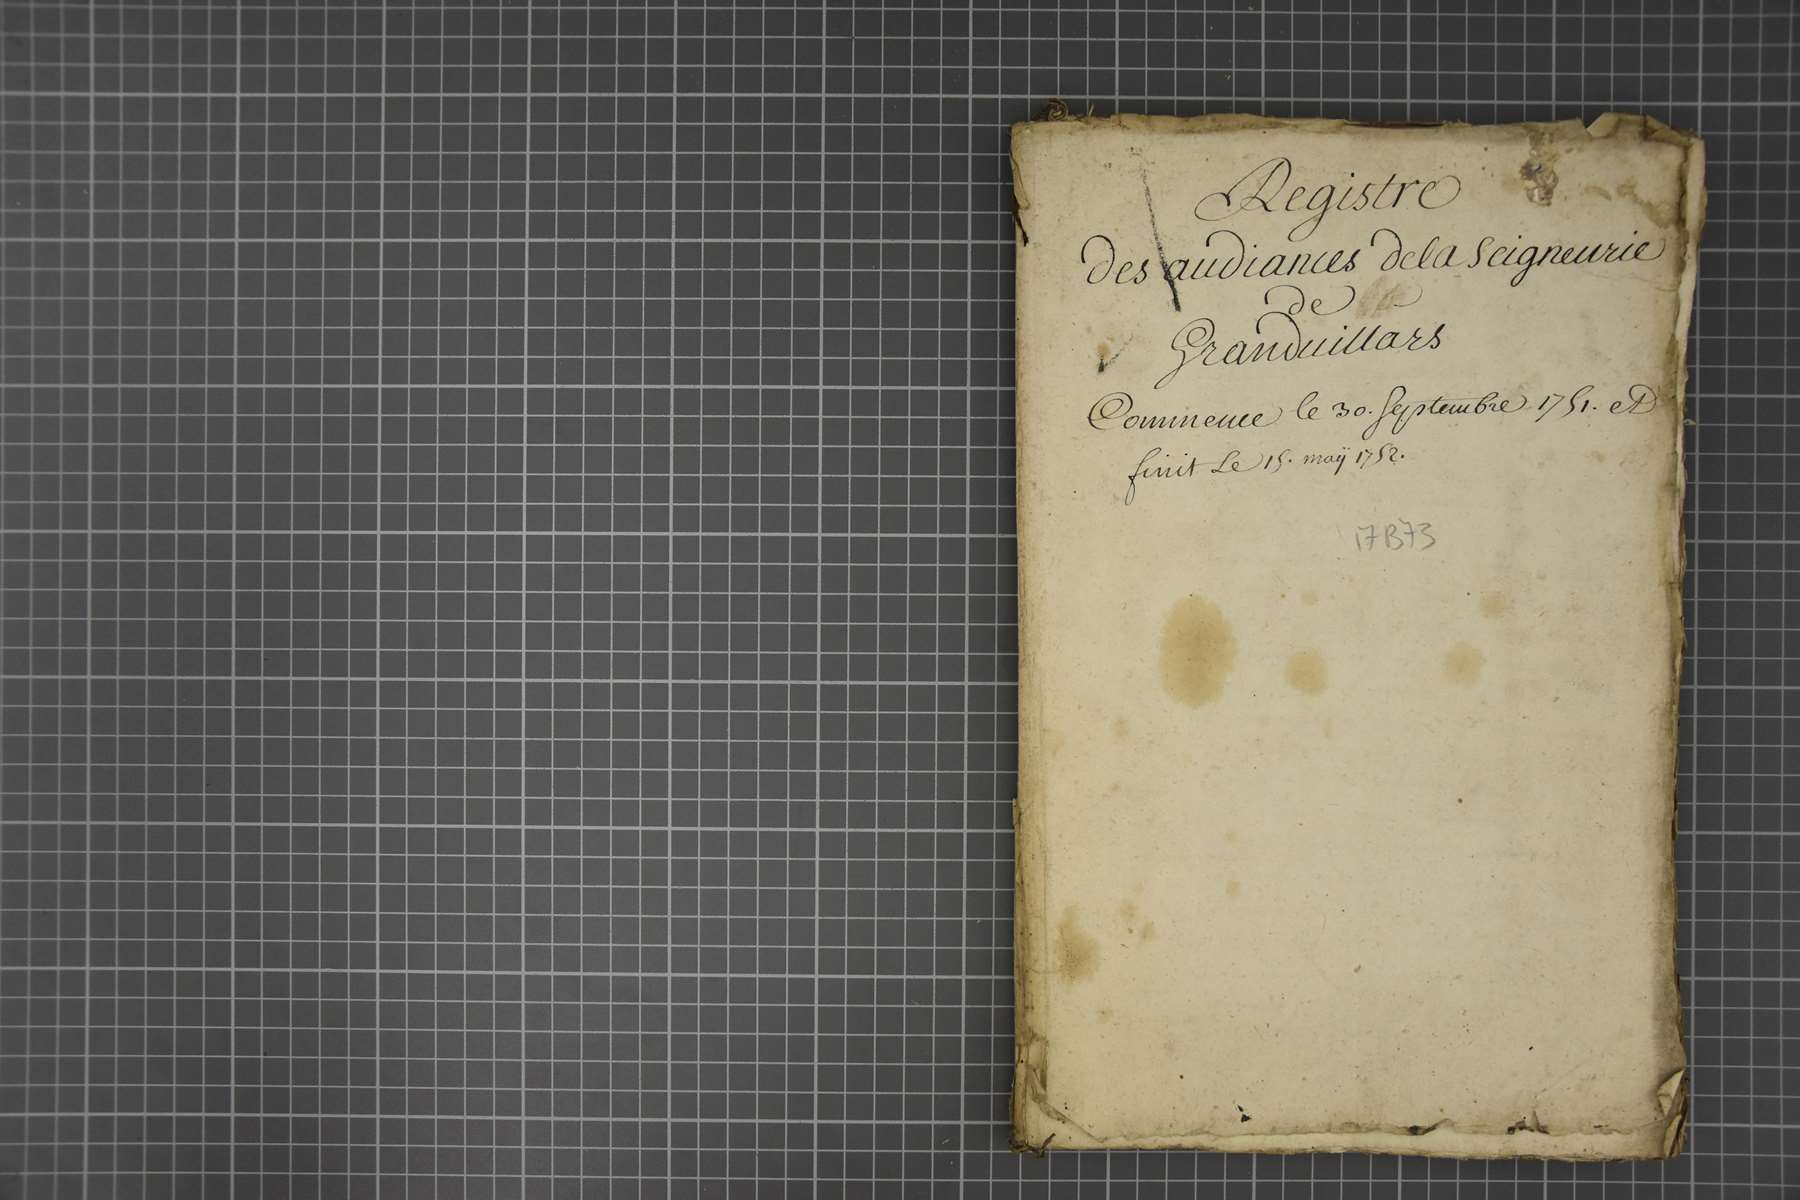 Registre
des audiances dela Seigneurie
de
Granduillars
Commence le 30. Septembre 1751. et
finit Le 15. maÿ 1752.
17B73